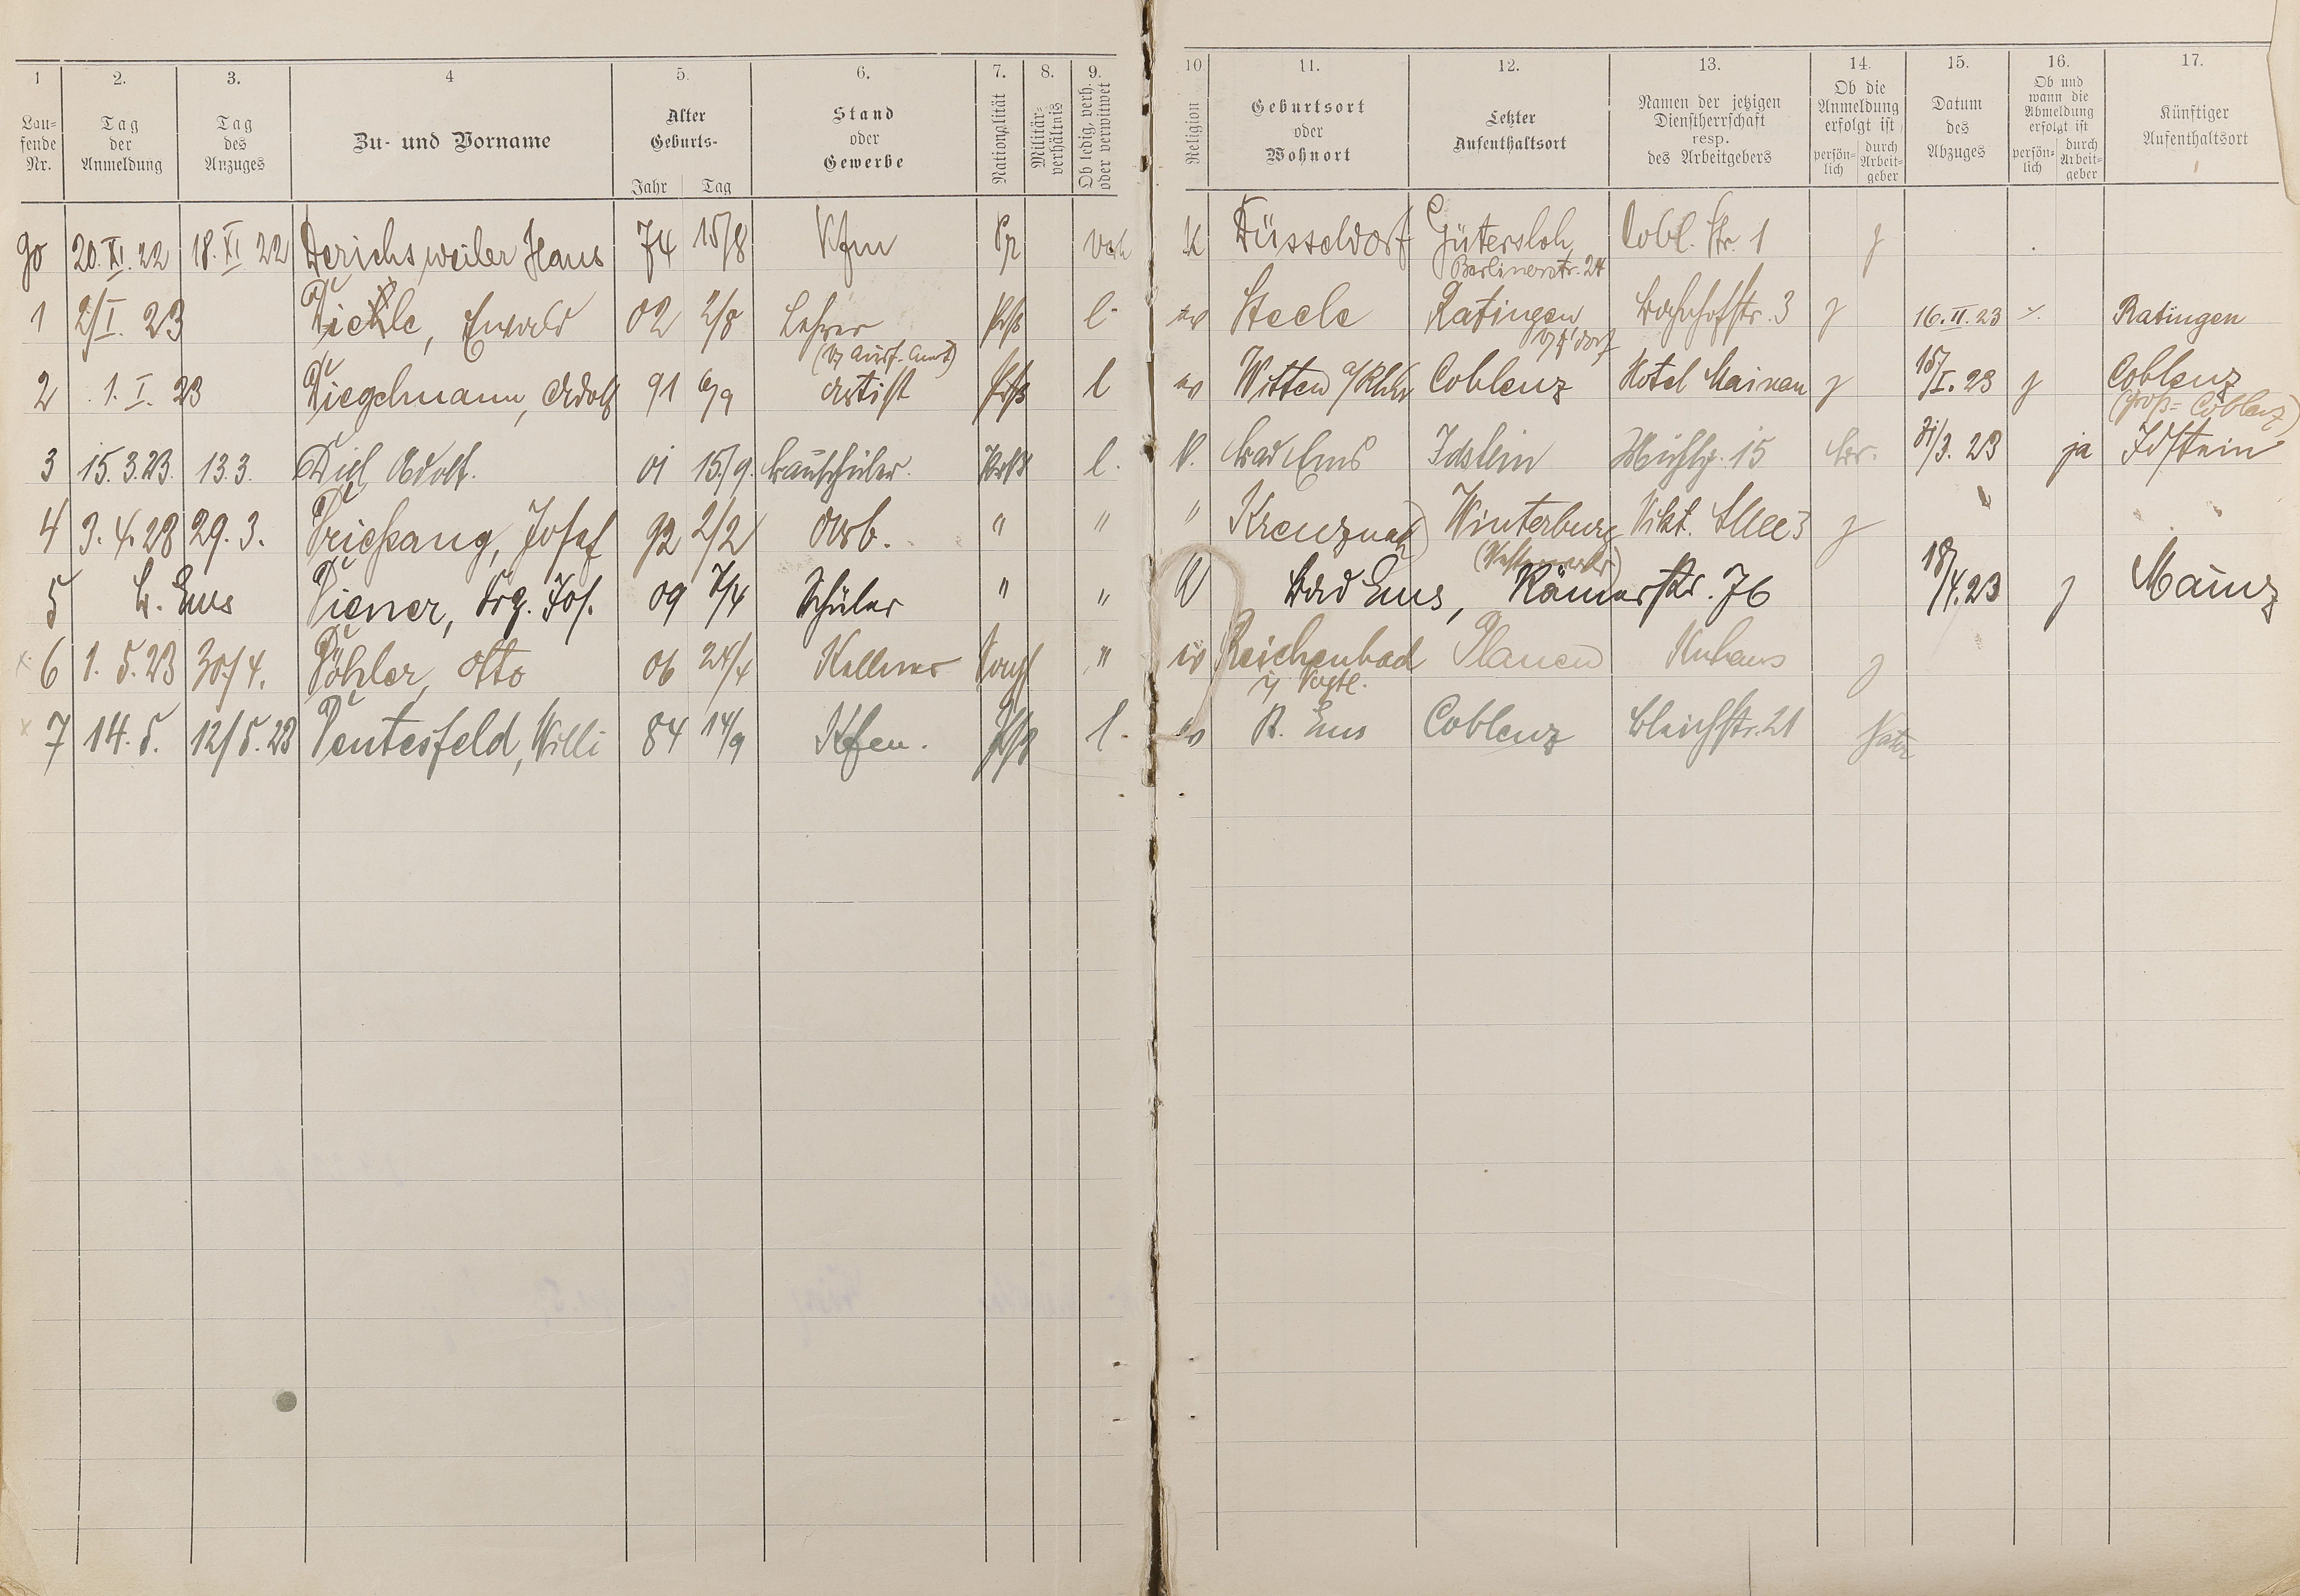 1 2. 3. 4 5. 6. 7. 8. 9. 10 11. 12. 13. 14. 15. 16. 17.
Laufende Nr.
Tag der Anmeldung
Tag des Anzuges
Zu- und Vorname
Alter Geburts- Jahr Tag
Stand oder Gewerbe
Nationalität
Militärverhältnis
Ob ledig, verh. oder verwitwet
Religion
Geburtsort oder Wohnort
Letzter Aufenthaltsort
Namen der jetzigen Dienstherrschaft resp. des Arbeitgebers
Ob die Anmeldung erfolgt ist persönlich durch Arbeitgeber
Datum des Abzuges
Ob und wann die Abmeldung erfolgt ist persönlich durch Arbeitgeber
Künftiger Aufenthaltsort
90 20. XI. 22 18. XI 22 Derichsweiler Hans 74 15/8 Kfm Pr verh K Düsseldorf Gütersloh Cobl. Str. 1 j
Berlinerstr. 24
1 2/I. 23 Ewald 02 2/8 Lehrer l. ev Steele Ratingen Bahnhofstr. 3 j 16. II. 23 Ratingen
2 1. I. 23 Diegelmann, Adolf 91 6/9 Artist l ev Witten Coblenz Hotel Mainau j 15/I. 23 j Coblenz
(groß= Coblenz)
3 15. 3. 23. 13. 3. Diel Adolf. 01 15/9. Bauschüler. l. K. Bad Ems Idstein 15 31/3. 23 ja Idstein
4 3. 4. 23 29. 3. Driesang, Josef 92 2/2 Arb. " " " Kreuznach Winterburg Vikt. Allee 3 j
(Westerwald)
5 B. Ems Diener, Frz. Jos. 09 7/4 Schüler " " K Bad Ems, Römerstr. 76 18/4. 23 j Mainz
6 1. 5. 23 30/4. Döhler, Otto 06 24/4 Kellner " ev Reichenbach Plauen Kurhaus j
i/ Vogtl.
7 14. 5. 12/5. 23 Dentesfeld, Willi 84 14/9 Kfm. l. ev B. Ems Coblenz Bleichstr. 21 Vater